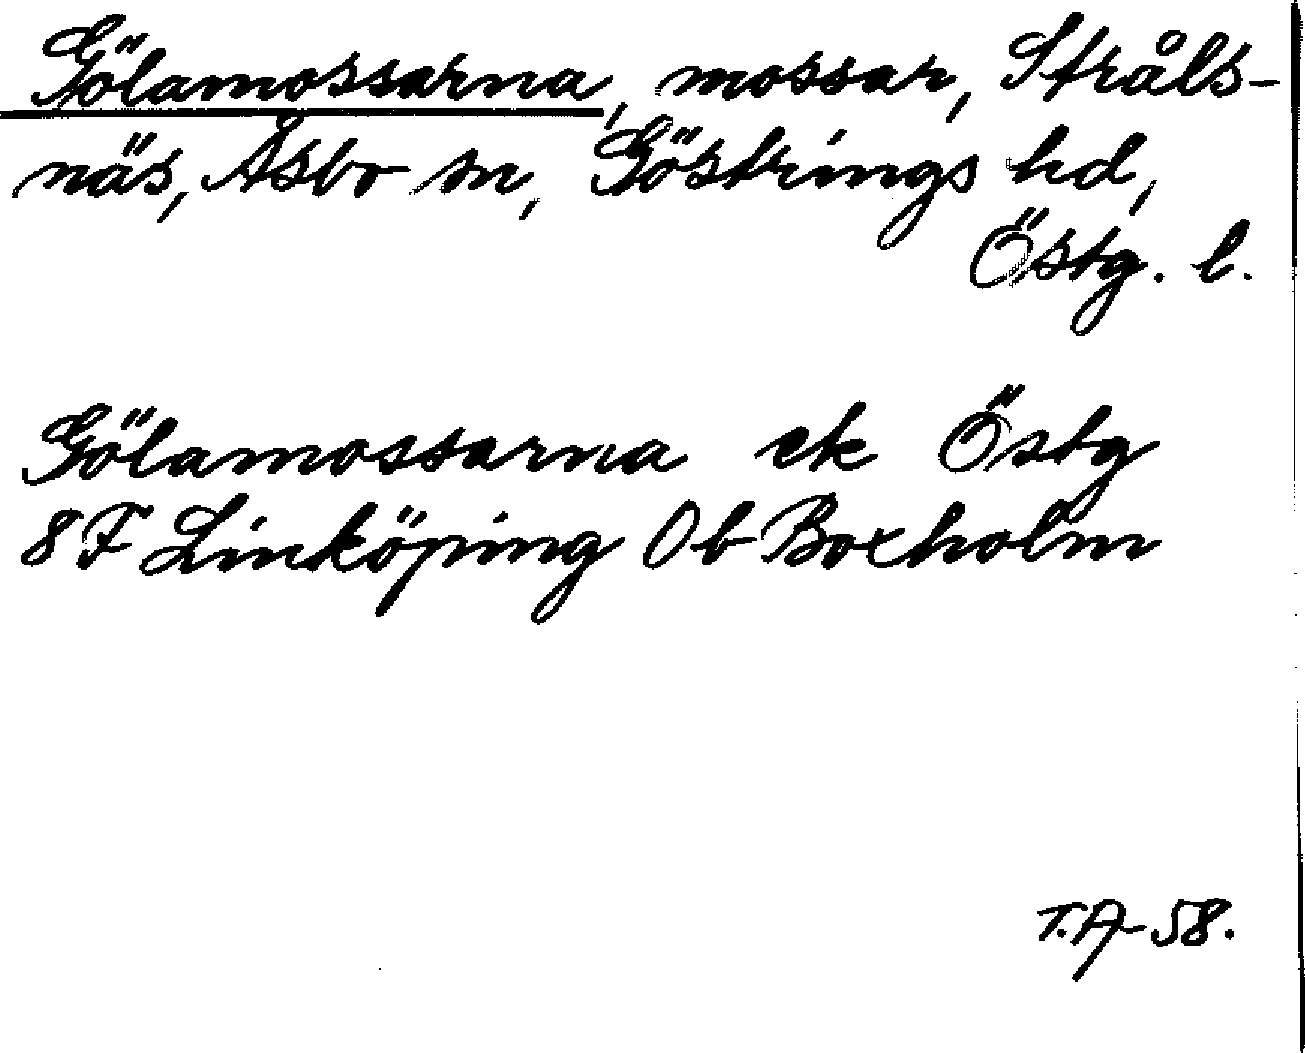 Gölamossarna, mossar, Stråls-
näs, Åsbo sn, Göstrings hd,
Östg. l.
Gölamossarna ek Östg
8F Linköping Ob Boxholm
T.A-58.